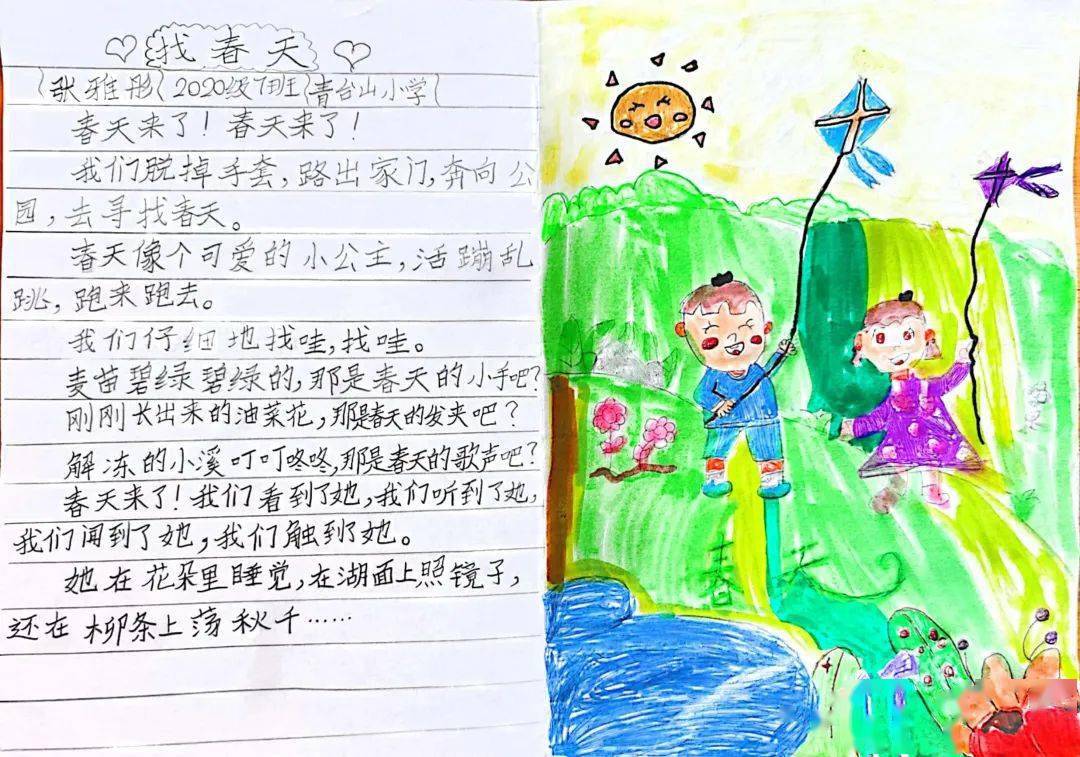 找春天
张雅彤 2020级7班 青台山小学
春天来了！春天来了！
我们脱掉手套，路出家门，奔向公
园，去寻找春天。
春天像个可爱的小公主，活蹦乱
跳，跑来跑去。
我们仔细地找哇，找哇。
麦苗碧绿碧绿的，那是春天的小手吧？
刚刚长出来的油菜花，那是春天的发夹吧？
解冻的小溪叮叮咚咚，那是春天的歌声吧？
春天来了！我们看到了她，我们听到了她，
我们闻到了她，我们触到了她。
她在花朵里睡觉，在湖面上照镜子，
还在柳条上荡秋千……
春天